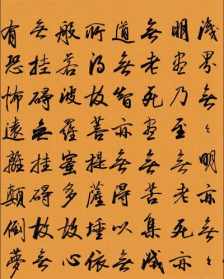 識界無〻明亦〻〻
明盡乃至無老死亦
無老死盡無苦集滅
道無智亦無得以無
所得故菩提薩埵依
般若波羅蜜多故心
無挂礙無挂礙故無
有恐怖遠離顛倒夢